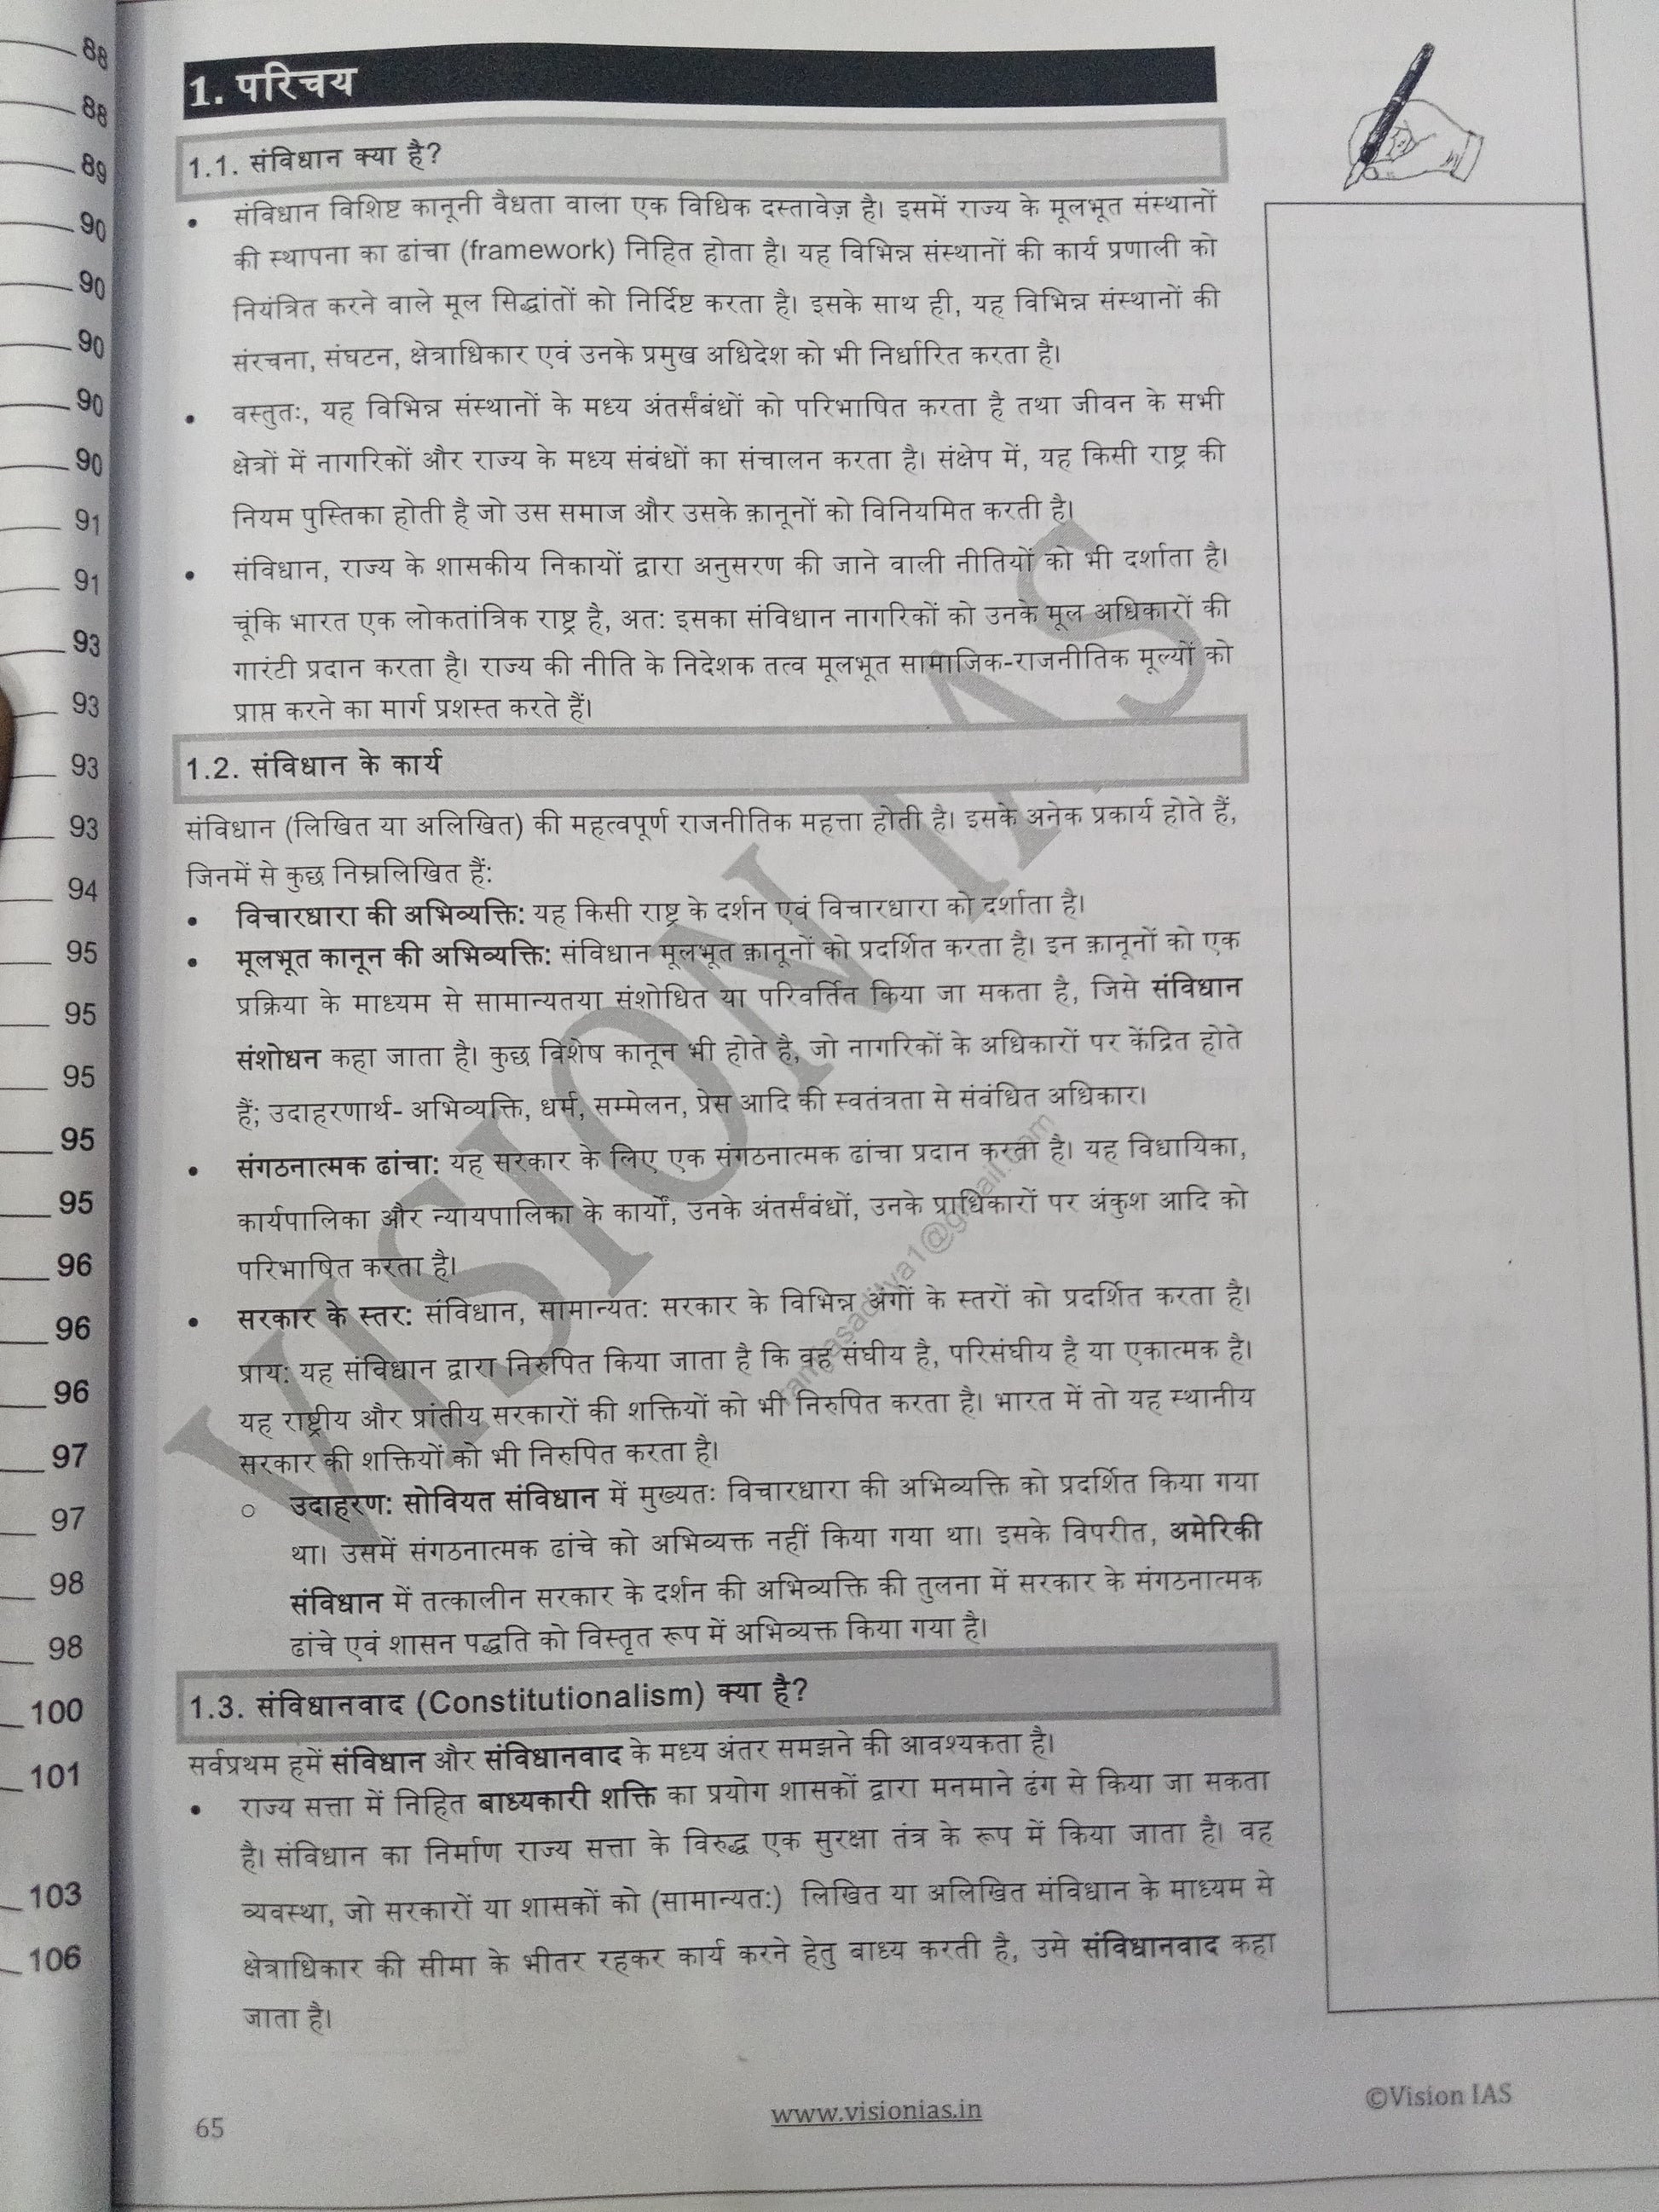 88
88
89
90
90
90
90
90
91
91
93
93
93
93
94
95
95
95
95
95
96
96
96
97
97
98
98
100
101
103
106
1. परिचय
1.1. संविधान क्या है?
• संविधान विशिष्ट कानूनी वैधता वाला एक विधिक दस्तावेज़ है। इसमें राज्य के मूलभूत संस्थानों
की स्थापना का ढांचा (framework) निहित होता है। यह विभिन्न संस्थानों की कार्य प्रणाली को
नियंत्रित करने वाले मूल सिद्धांतों को निर्दिष्ट करता है। इसके साथ ही, यह विभिन्न संस्थानों की
संरचना, संघटन, क्षेत्राधिकार एवं उनके प्रमुख अधिदेश को भी निर्धारित करता है।
• वस्तुतः, यह विभिन्न संस्थानों के मध्य अंतर्संबंधों को परिभाषित करता है तथा जीवन के सभी
क्षेत्रों में नागरिकों और राज्य के मध्य संबंधों का संचालन करता है। संक्षेप में, यह किसी राष्ट्र की
नियम पुस्तिका होती है जो उस समाज और उसके क़ानूनों को विनियमित करती है।
• संविधान, राज्य के शासकीय निकायों द्वारा अनुसरण की जाने वाली नीतियों को भी दर्शाता है।
चूंकि भारत एक लोकतांत्रिक राष्ट्र है, अत: इसका संविधान नागरिकों को उनके मूल अधिकारों की
गारंटी प्रदान करता है। राज्य की नीति के निदेशक तत्व मूलभूत सामाजिक-राजनीतिक मूल्यों को
प्राप्त करने का मार्ग प्रशस्त करते हैं।
1.2. संविधान के कार्य
संविधान (लिखित या अलिखित) की महत्वपूर्ण राजनीतिक महत्ता होती है। इसके अनेक प्रकार्य होते हैं,
जिनमें से कुछ निम्नलिखित हैं:
• विचारधारा की अभिव्यक्ति: यह किसी राष्ट्र के दर्शन एवं विचारधारा को दर्शाता है।
• मूलभूत कानून की अभिव्यक्ति: संविधान मूलभूत क़ानूनों को प्रदर्शित करता है। इन क़ानूनों को एक
प्रक्रिया के माध्यम से सामान्यतया संशोधित या परिवर्तित किया जा सकता है, जिसे संविधान
संशोधन कहा जाता है। कुछ विशेष कानून भी होते है, जो नागरिकों के अधिकारों पर केंद्रित होते
हैं; उदाहरणार्थ- अभिव्यक्ति, धर्म, सम्मेलन, प्रेस आदि की स्वतंत्रता से संबंधित अधिकार।
• संगठनात्मक ढांचा: यह सरकार के लिए एक संगठनात्मक ढांचा प्रदान करता है। यह विधायिका,
कार्यपालिका और न्यायपालिका के कार्यों, उनके अंतर्संबंधों, उनके प्राधिकारों पर अंकुश आदि को
परिभाषित करता है।
• सरकार के स्तर: संविधान, सामान्यत: सरकार के विभिन्न अंगों के स्तरों को प्रदर्शित करता है।
प्राय: यह संविधान द्वारा निरुपित किया जाता है कि वह संघीय है, परिसंघीय है या एकात्मक है।
यह राष्ट्रीय और प्रांतीय सरकारों की शक्तियों को भी निरुपित करता है। भारत में तो यह स्थानीय
सरकार की शक्तियों को भी निरुपित करता है।
○ उदाहरण: सोवियत संविधान में मुख्यतः विचारधारा की अभिव्यक्ति को प्रदर्शित किया गया
था। उसमें संगठनात्मक ढांचे को अभिव्यक्त नहीं किया गया था। इसके विपरीत, अमेरिकी
संविधान में तत्कालीन सरकार के दर्शन की अभिव्यक्ति की तुलना में सरकार के संगठनात्मक
ढांचे एवं शासन पद्धति को विस्तृत रूप में अभिव्यक्त किया गया है।
1.3. संविधानवाद (Constitutionalism) क्या है?
सर्वप्रथम हमें संविधान और संविधानवाद के मध्य अंतर समझने की आवश्यकता है।
• राज्य सत्ता में निहित बाध्यकारी शक्ति का प्रयोग शासकों द्वारा मनमाने ढंग से किया जा सकता
है। संविधान का निर्माण राज्य सत्ता के विरुद्ध एक सुरक्षा तंत्र के रूप में किया जाता है। वह
व्यवस्था, जो सरकारों या शासकों को (सामान्यत:) लिखित या अलिखित संविधान के माध्यम से
क्षेत्राधिकार की सीमा के भीतर रहकर कार्य करने हेतु बाध्य करती है, उसे संविधानवाद कहा
जाता है।
VISION IAS
65
www.visionias.in
©Vision IAS